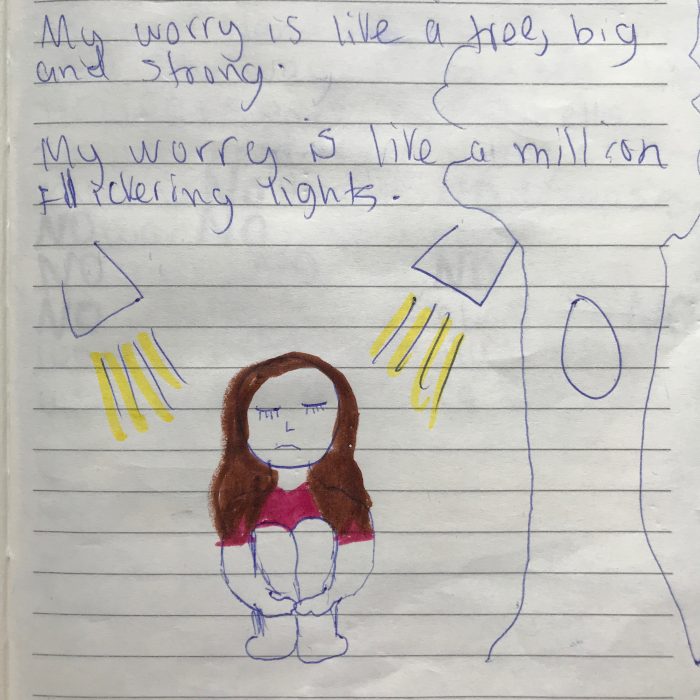 My worry is like a tree, big
and strong.
My worry is like a million
flickering lights.